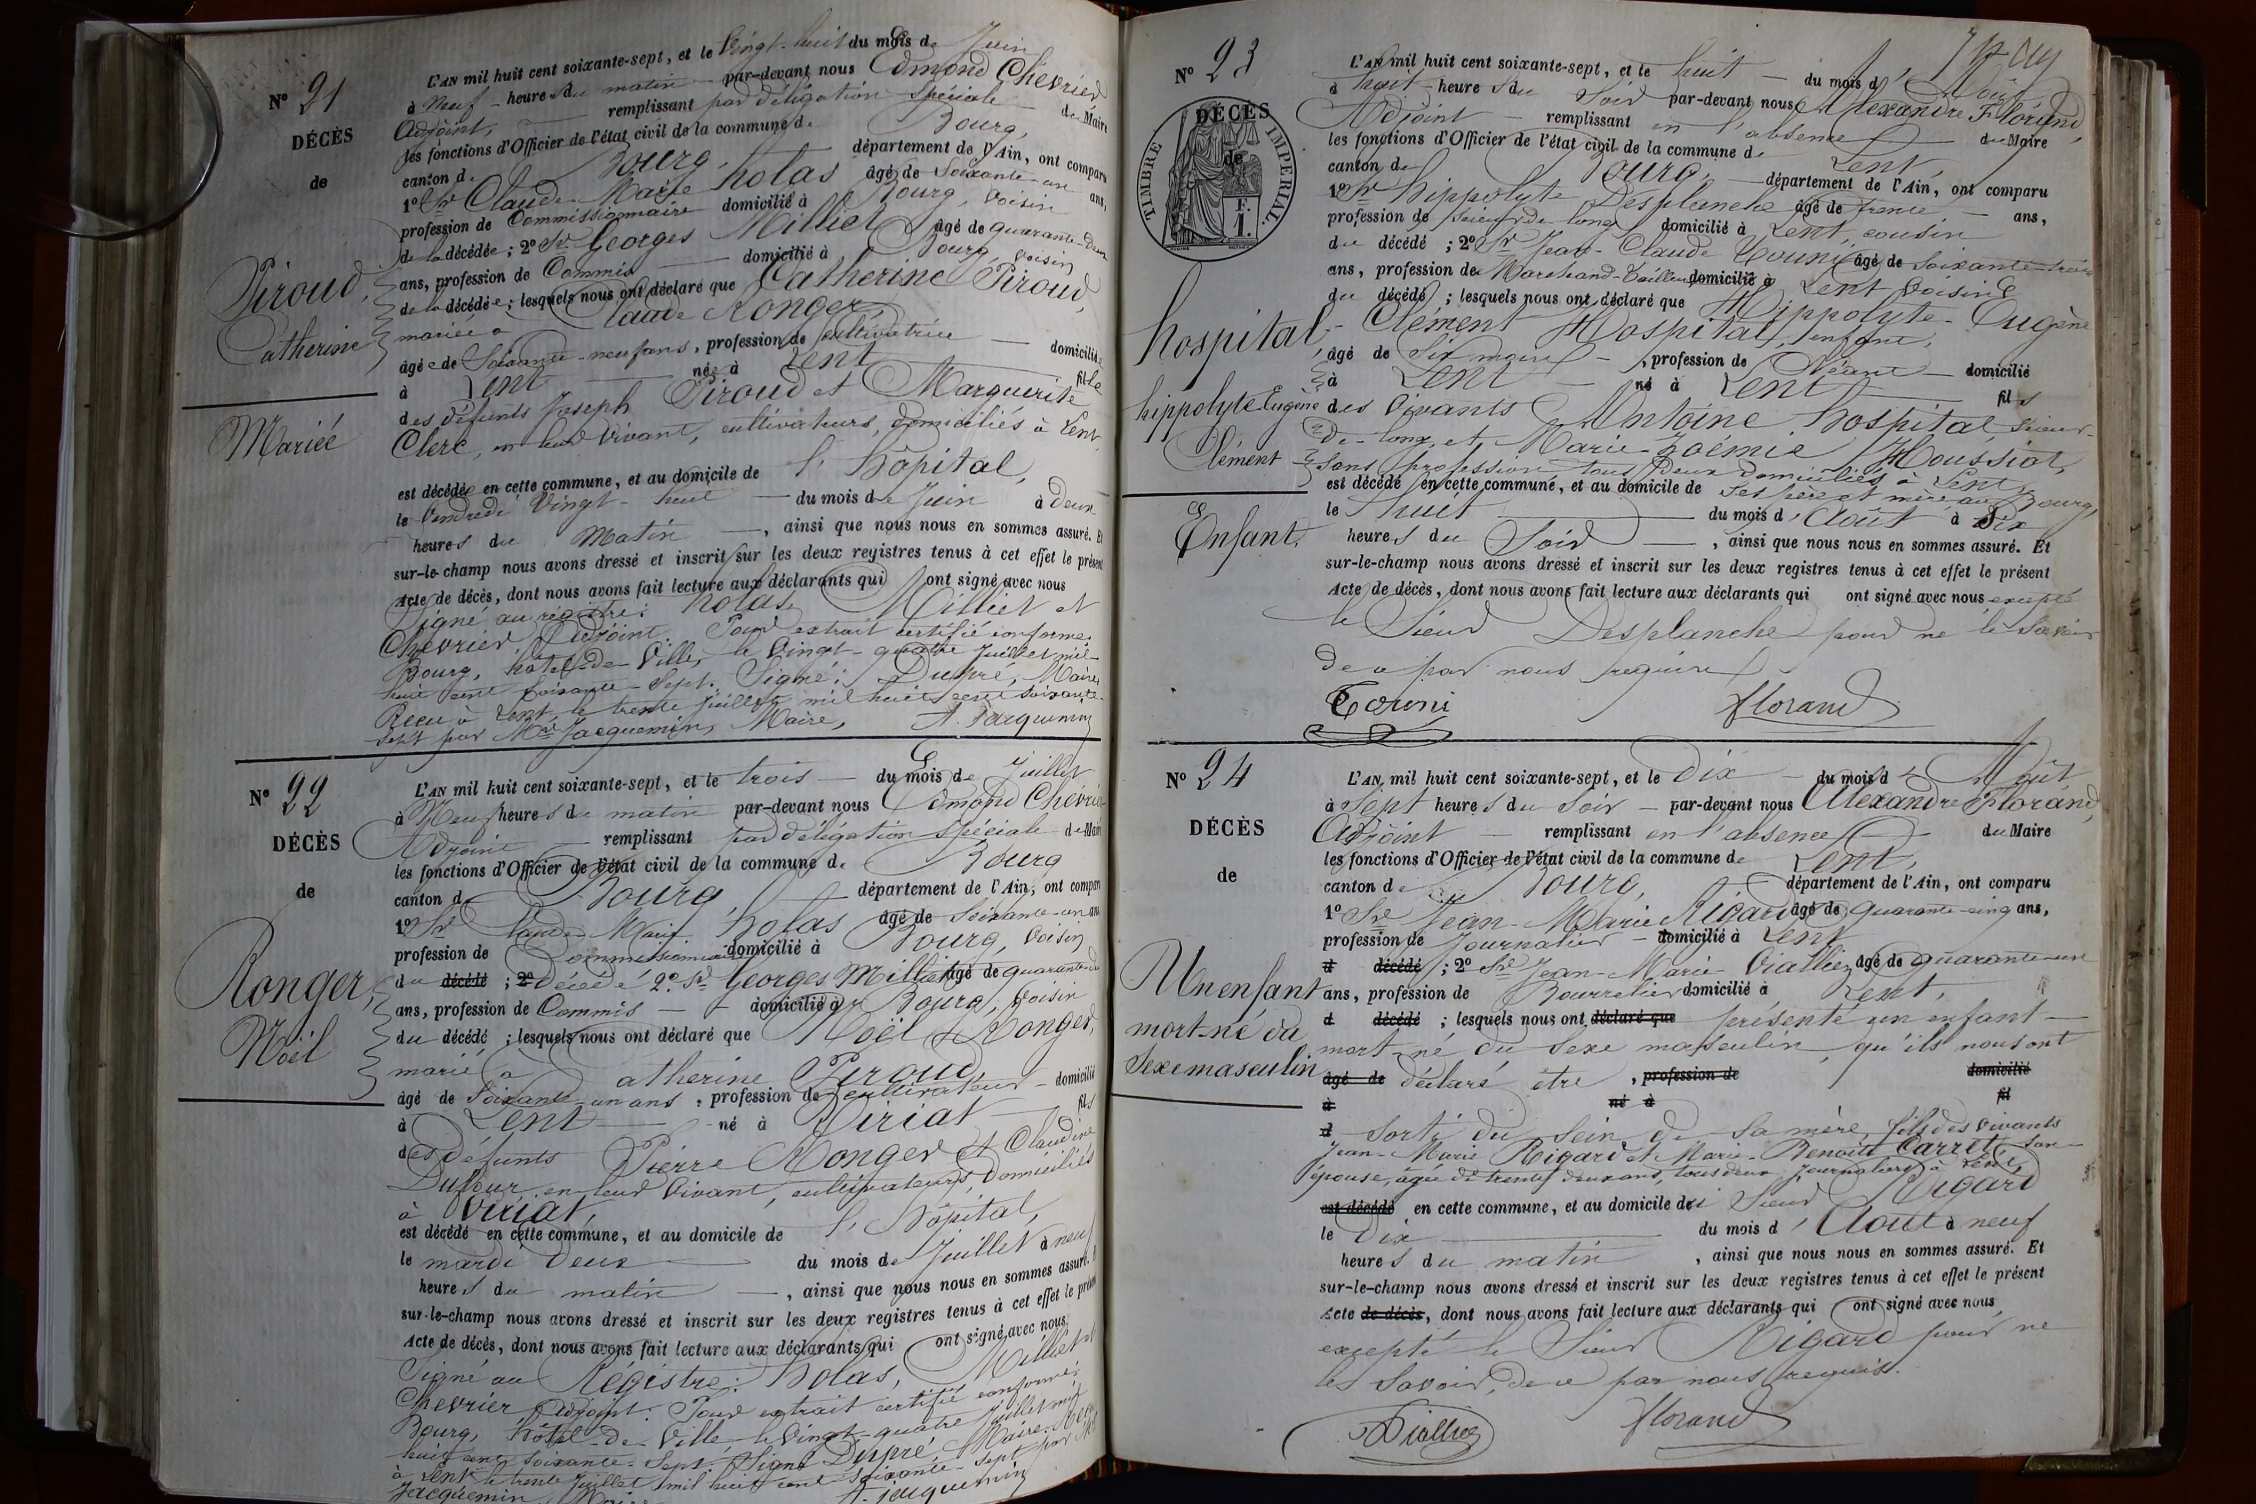 N° 21
DÉCÈS
de
Piroud,
Catherine
Mariée
L'AN mil huit cent soixante-sept, et le Vingt-huit du mois de Juin
à neuf heures du matin par-devant nous Edmond Chevrier
Adjoint, remplissant par délégation spéciale de Maire
les fonctions d'Officier de l'état civil de la commune de Bourg,
canton de Bourg, département de l'Ain, ont comparu
1° Sr Claude-Marie holas âgé de Soixante-un ans,
profession de Commissionnaire domicilié à Bourg, voisin
de la décédée ; 2° Sr Georges Milliet âgé de quarante-deux
ans, profession de Commis domicilié à Bourg, voisin
de la décédée ; lesquels nous ont déclaré que Catherine Piroud,
mariée à Claude Ronger
âgée de Soixante-neuf ans, profession de cultivatrice domiciliée
à Lent née à Lent fille
des défunts Joseph Piroud et Marguerite
Clerc, en leur vivant, cultivateurs, domiciliés à Lent
est décédée en cette commune, et au domicile de l'hôpital,
le Vendredi Vingt-huit du mois de Juin à deux
heures du Matin, ainsi que nous nous en sommes assuré. Et
sur-le-champ nous avons dressé et inscrit sur les deux registres tenus à cet effet le présent
Acte de décès, dont nous avons fait lecture aux déclarants qui ont signé avec nous
Signé au régistre: holas, Milliet et
Chevrier, Adjoint. Pour extrait certifié conforme.
Bourg, hôtel-de-Ville, le Vingt-quatre Juillet mil-
huit cent soixante-sept. Signé: Dupré, Maire,
Reçu à Lent, le trente juillet mil huit cent soixante-
sept par Mr Jacquemin, Maire, A. Jacquemin
N° 22
DÉCÈS
de
Ronger,
Noël
L'AN mil huit cent soixante-sept, et le trois du mois de Juillet
à Neuf heures du matin par-devant nous Edmond Chévrier
Adjoint remplissant par délégation spéciale de Maire
les fonctions d'Officier de l'état civil de la commune de Bourg
canton de Bourg, département de l'Ain, ont comparu
1° Sr Claude Marie holas âgé de Soixante-un ans
profession de Commissionnaire domicilié à Bourg, voisin
du décédé ; 2° décédé 2° Sr Georges Milliet âgé de quarante-deux
ans, profession de Commis domicilié à Bourg, voisin
du décédé ; lesquels nous ont déclaré que Noël Ronger,
marié à Catherine Piroud
âgé de Soixante-un ans, profession de cultivateur domicilié
à Lent né à Viriat fils
des défunts Pierre Ronger et Claudine
Dufour, en leur vivant, cultivateurs, domiciliés
à Viriat,
est décédé en cette commune, et au domicile de l'hôpital,
le mardi deux du mois de Juillet à neuf
heures du matin, ainsi que nous nous en sommes assuré. Et
sur-le-champ nous avons dressé et inscrit sur les deux registres tenus à cet effet le présent
Acte de décès, dont nous avons fait lecture aux déclarants qui ont signé avec nous
Signé au Régistre: holas, Milliet et
Chevrier Adjoint. Pour extrait certifié conforme,
Bourg, hôtel-de-Ville le Vingt-quatre Juillet mil
huit cent soixante-sept. Signé Dupré, Maire. Reçu
à Lent le trente Juillet mil huit cent soixante-sept par Mr
Jacquemin, Maire A. Jacquemin
N° 23
DÉCÈS
de
TIMBRE IMPERIAL
F.
1.
hospital,
hippolyte Eugène
Clément
Enfant.
L'AN mil huit cent soixante-sept, et le huit du mois d'Août
à huit heures du Soir par-devant nous Alexandre Florand,
Adjoint remplissant en l'absence du Maire
les fonctions d'Officier de l'état civil de la commune de Lent
canton de Bourg, département de l'Ain, ont comparu
1° Sr hippolyte Desplanche âgé de trente ans,
profession de Scieur de long domicilié à Lent, cousin
du décédé ; 2° Sr Jean-Claude Tournié âgé de Soixante-trois
ans, profession de Marchand-Tailleur domicilié à Lent Voisin
du décédé ; lesquels nous ont déclaré que Hippolyte-Eugène
Clément Hospital, enfant,
âgé de Six mois, profession de Néant domicilié
à Lent né à Lent fils
des Vivants Antoine hospital scieur-
de-long, et Marie Zoémie Moussiat,
Sans profession tous deux domiciliés à Lent,
est décédé en cette commune, et au domicile de Ses père et mère, au Bourg,
le huit du mois d'Août à Six
heures du Soir, ainsi que nous nous en sommes assuré. Et
sur-le-champ nous avons dressé et inscrit sur les deux registres tenus à cet effet le présent
Acte de décès, dont nous avons fait lecture aux déclarants qui ont signé avec nous excepté
le Sieur Desplanche pour ne le Savoir
de ce par nous requis
Florand
N° 24
DÉCÈS
de
Un enfant
mort-né du
Sexe masculin
L'AN mil huit cent soixante-sept, et le Dix du mois d'Août
à Sept heures du Soir par-devant nous Alexandre Florand,
Adjoint remplissant en l'absence du Maire
les fonctions d'Officier de l'état civil de la commune de Lent,
canton de Bourg, département de l'Ain, ont comparu
1° Sr Jean-Marie Rigard âgé de quarante-cinq ans,
profession de Journalier domicilié à Lent
d décédé ; 2° Sr Jean-Marie Vialliez âgé de quarante-un
ans, profession de Bourrelier domicilié à Lent,
d décédé ; lesquels nous ont déclaré que présenté un enfant
mort-né du Sexe masculin, qu'ils nous ont
âgé de déclaré être, profession de domicilié
à né à fil
d Sorti du sein de sa mère, fils des vivants
Jean-Marie Rigard et Marie-Benoite Carret, son
épouse, âgée de trente deux ans, tous deux Journaliers à Lent,
est décédé en cette commune, et au domicile du Sieur Rigard
le Dix du mois d'Août à neuf
heures du matin, ainsi que nous nous en sommes assuré. Et
sur-le-champ nous avons dressé et inscrit sur les deux registres tenus à cet effet le présent
Acte de décès, dont nous avons fait lecture aux déclarants qui ont signé avec nous
excepté le Sieur Rigard pour ne
le Savoir, de ce par nous requis.
Vialliez Florand